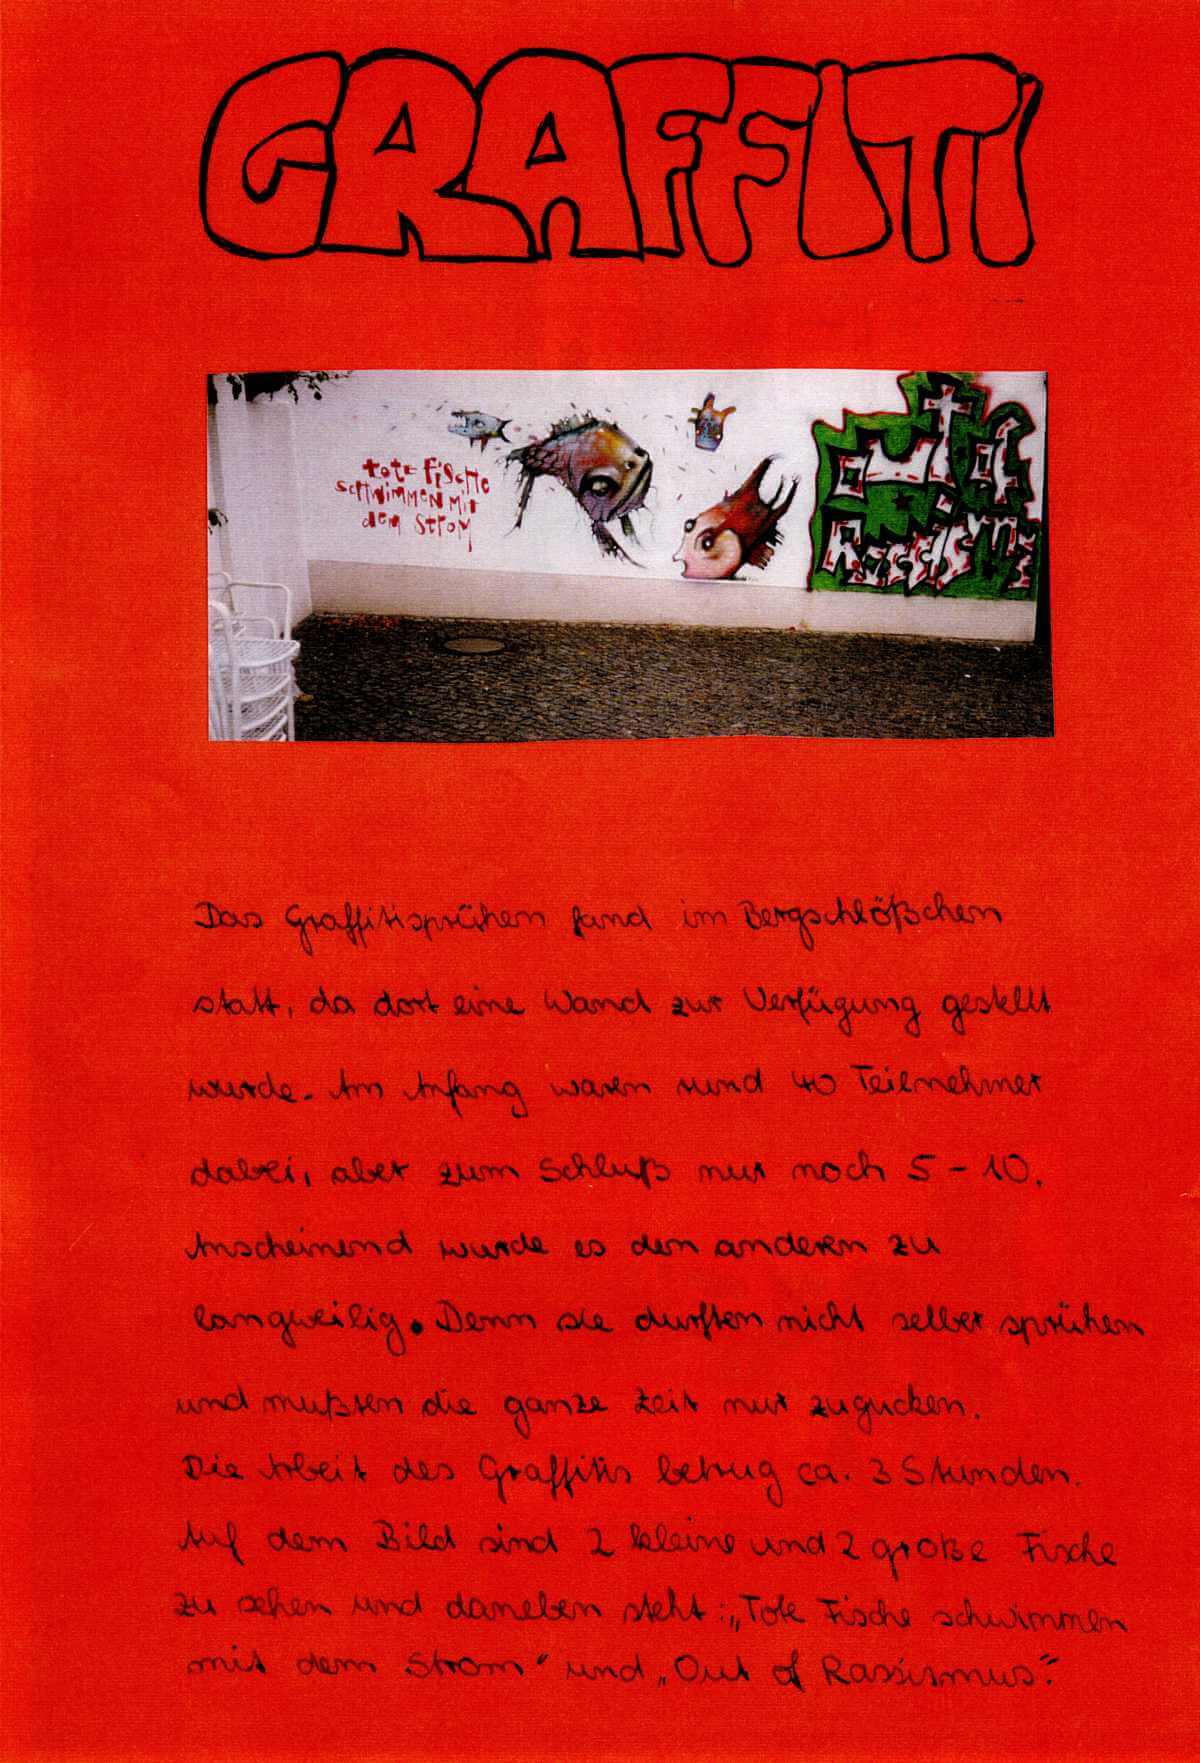 GRAFFITI
tote Fische
schwimmen mit
dem Strom
out of
Rassismus
Das Graffitisprühen fand im Bergschlößchen
statt, da dort eine Wand zur Verfügung gestellt
wurde. Am Anfang waren rund 40 Teilnehmer
dabei, aber zum Schluß nur noch 5 - 10.
Anscheinend wurde es den anderen zu
langweilig. Denn sie durften nicht selber sprühen
und mußten die ganze Zeit nur zugucken.
Die Arbeit des Graffitis betrug ca. 3 Stunden.
Auf dem Bild sind 2 kleine und 2 große Fische
zu sehen und daneben steht: „Tote Fische schwimmen
mit dem Strom" und „Out of Rassismus".